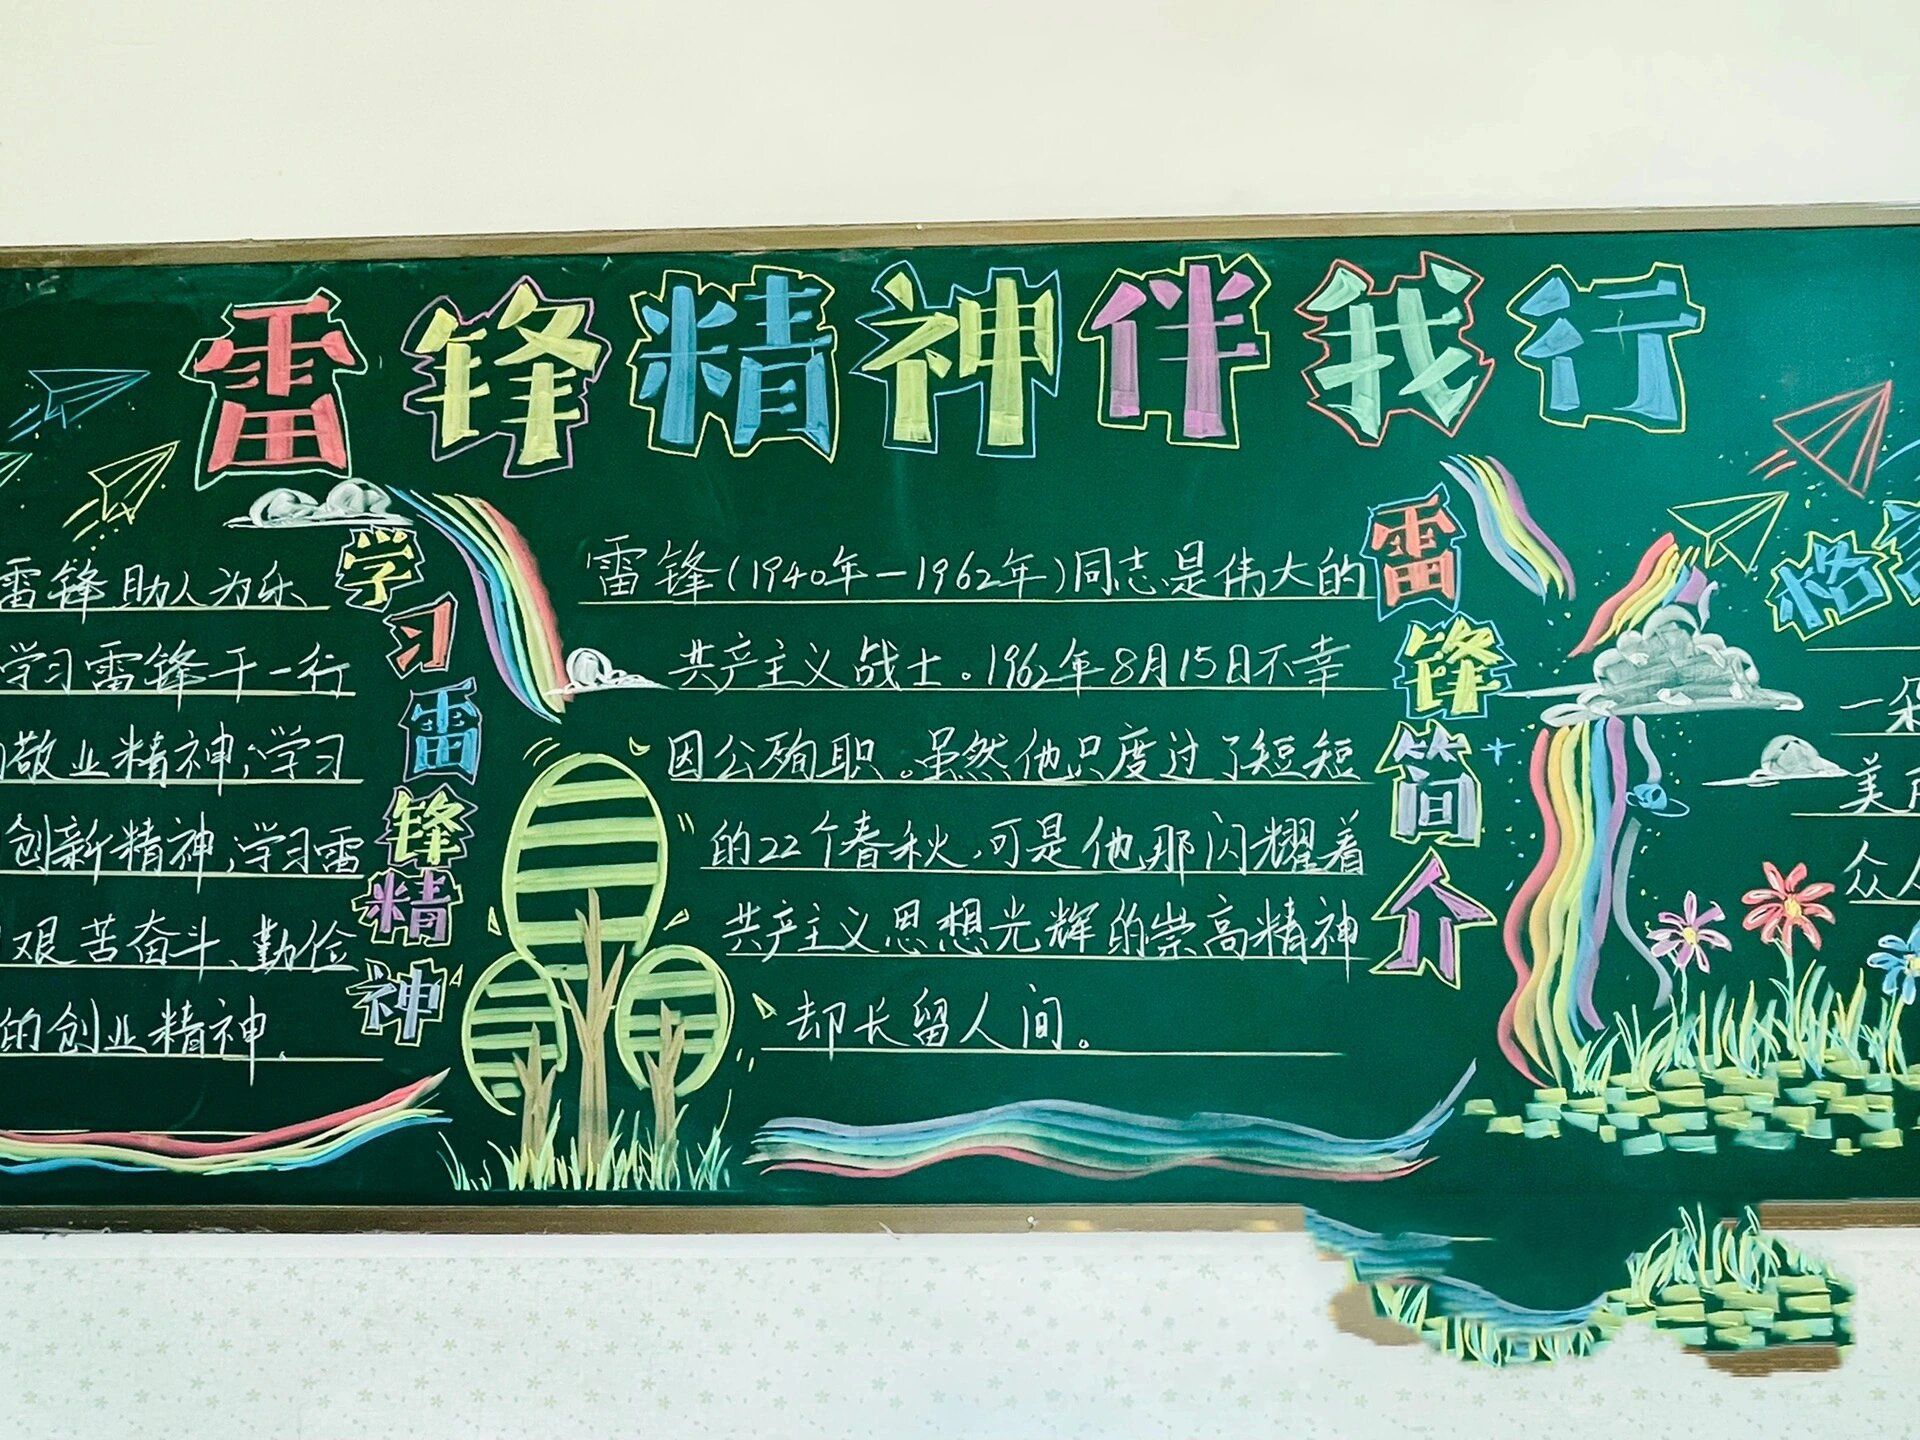 雷锋精神伴我行
雷锋助人为乐
学习雷锋干一行
敬业精神;学习
创新精神;学习雷
艰苦奋斗、勤俭
的创业精神.
学习雷锋精神
雷锋(1940年—1962年)同志是伟大的
共产主义战士。1962年8月15日不幸
因公殉职。虽然他只度过了短短
的22个春秋,可是他那闪耀着
共产主义思想光辉的崇高精神
却长留人间。
雷锋简介
格
一朵
美
众人